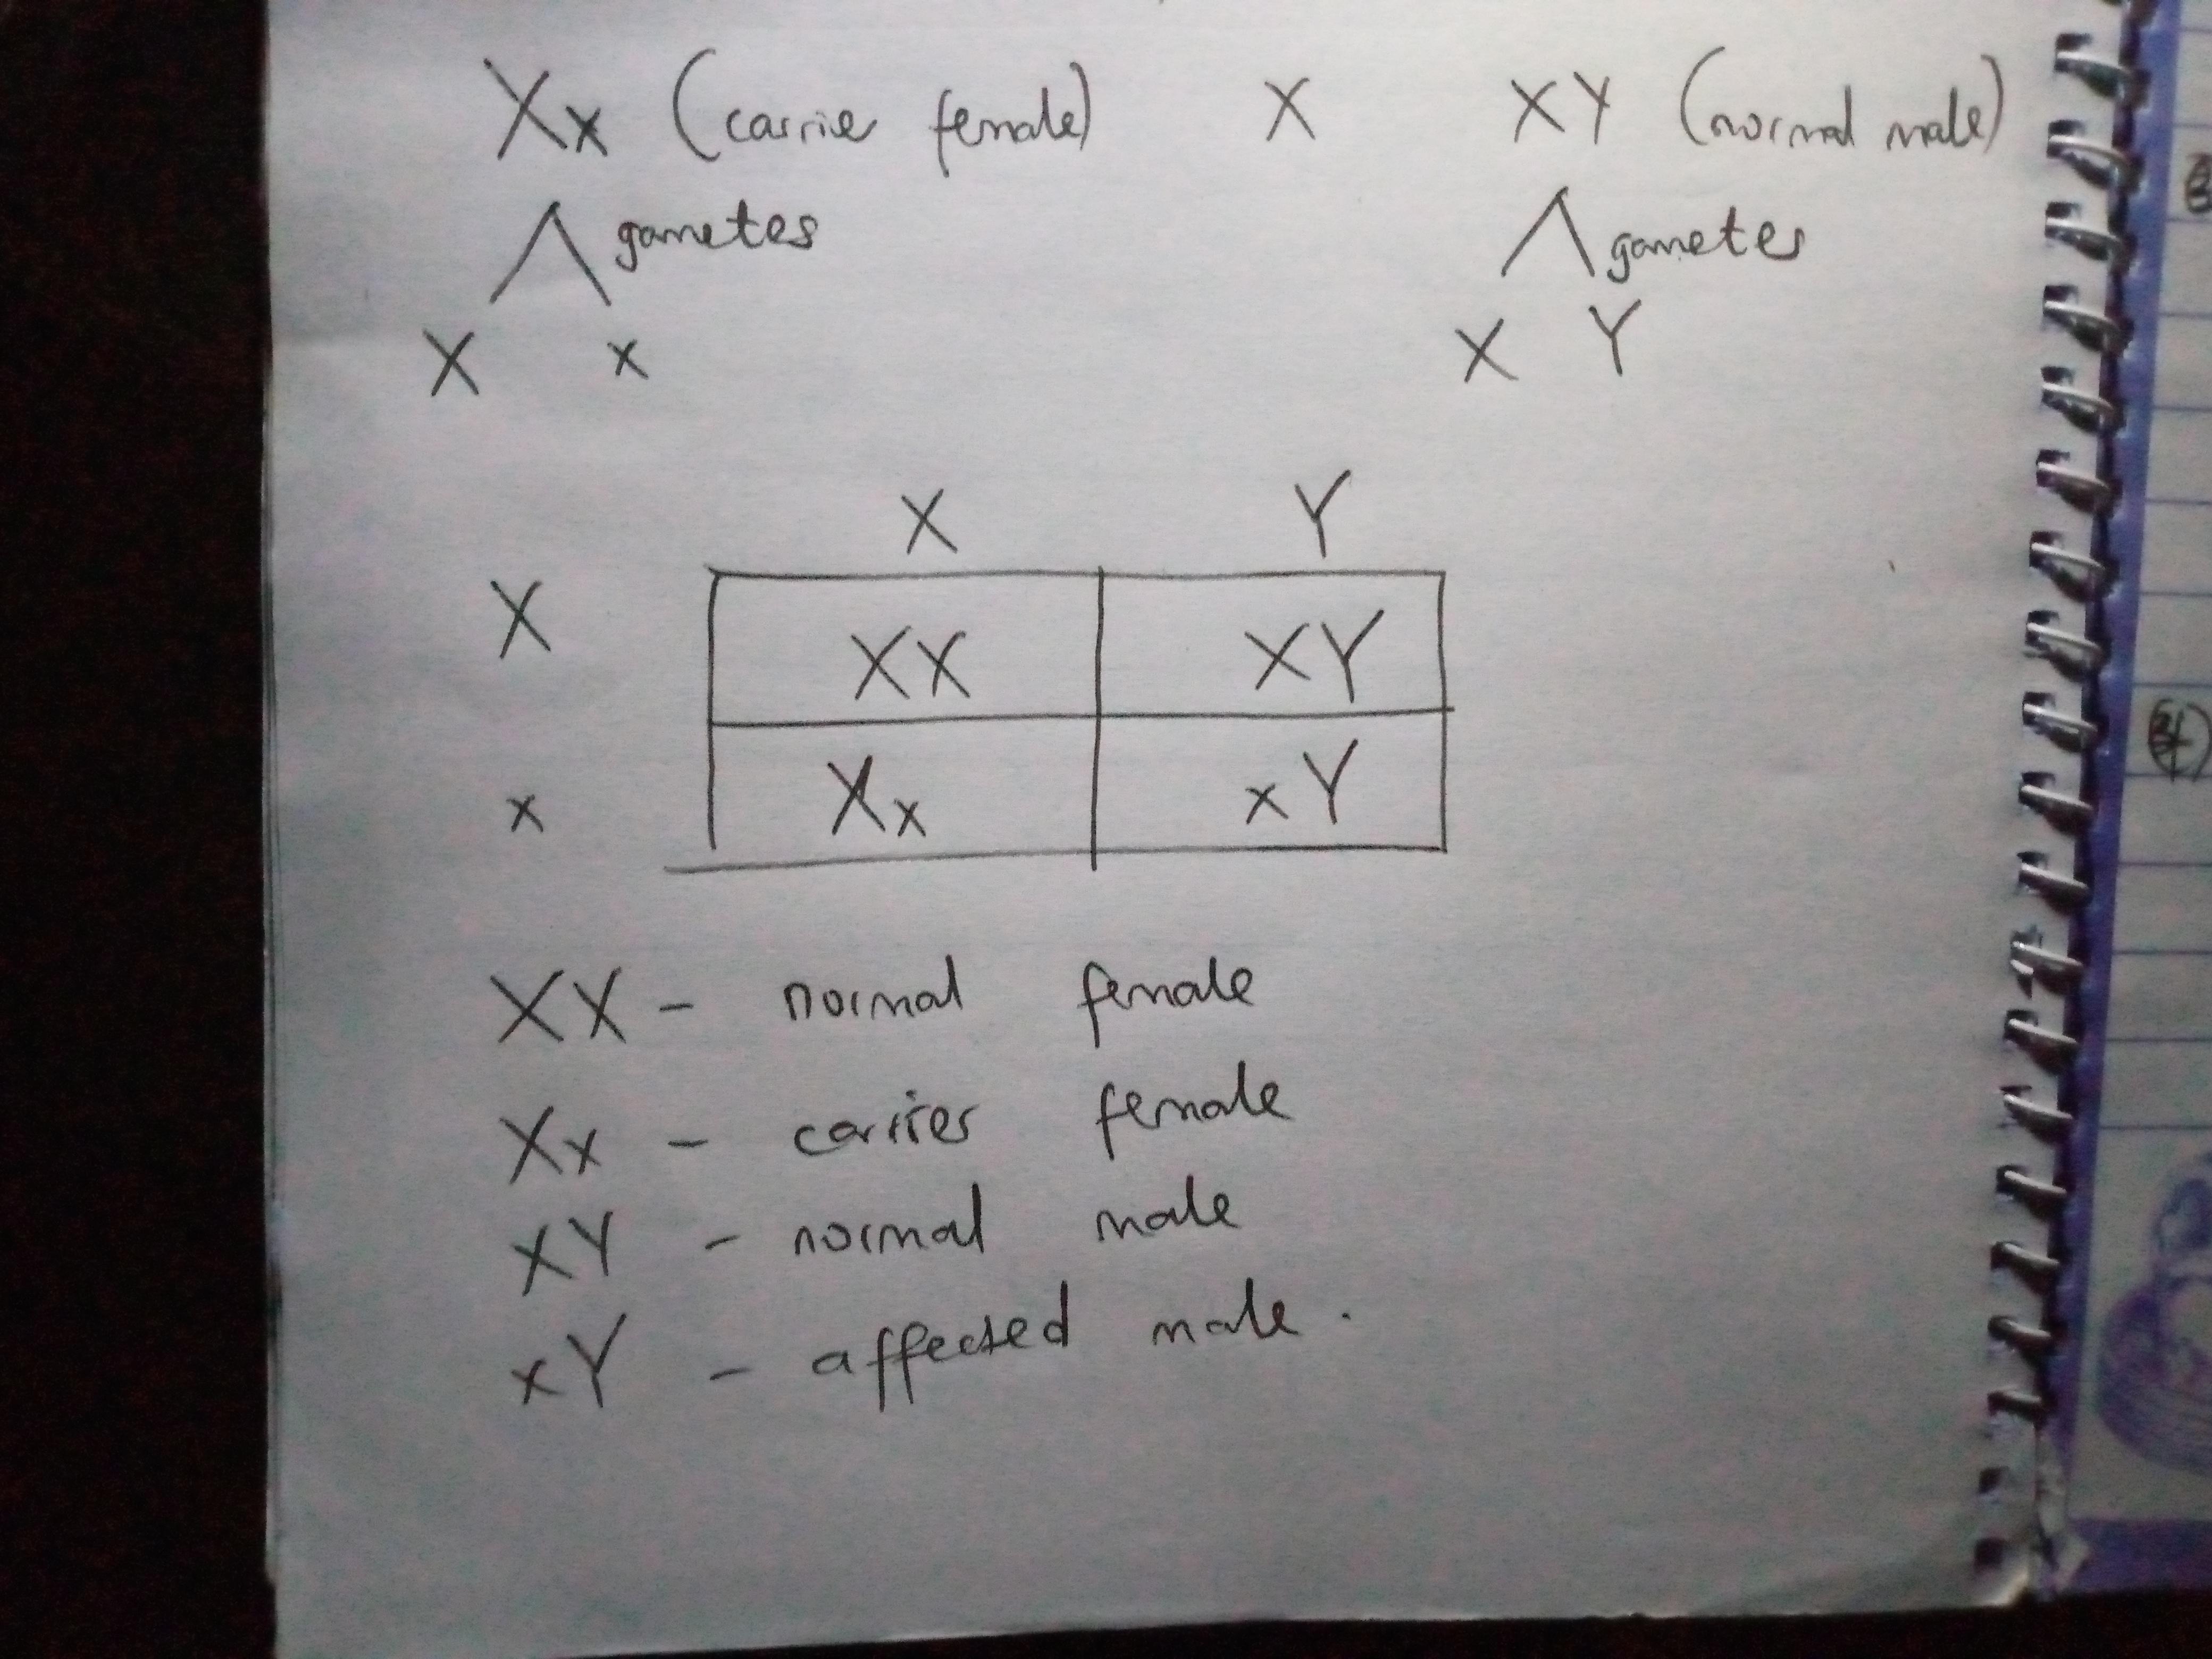 Xx (carrier female) X XY (normal male)
gametes gametes
X x X Y
X Y
X XX XY
x Xx xY
XX - normal female
Xx - carrier female
XY - normal male
xY - affected male.